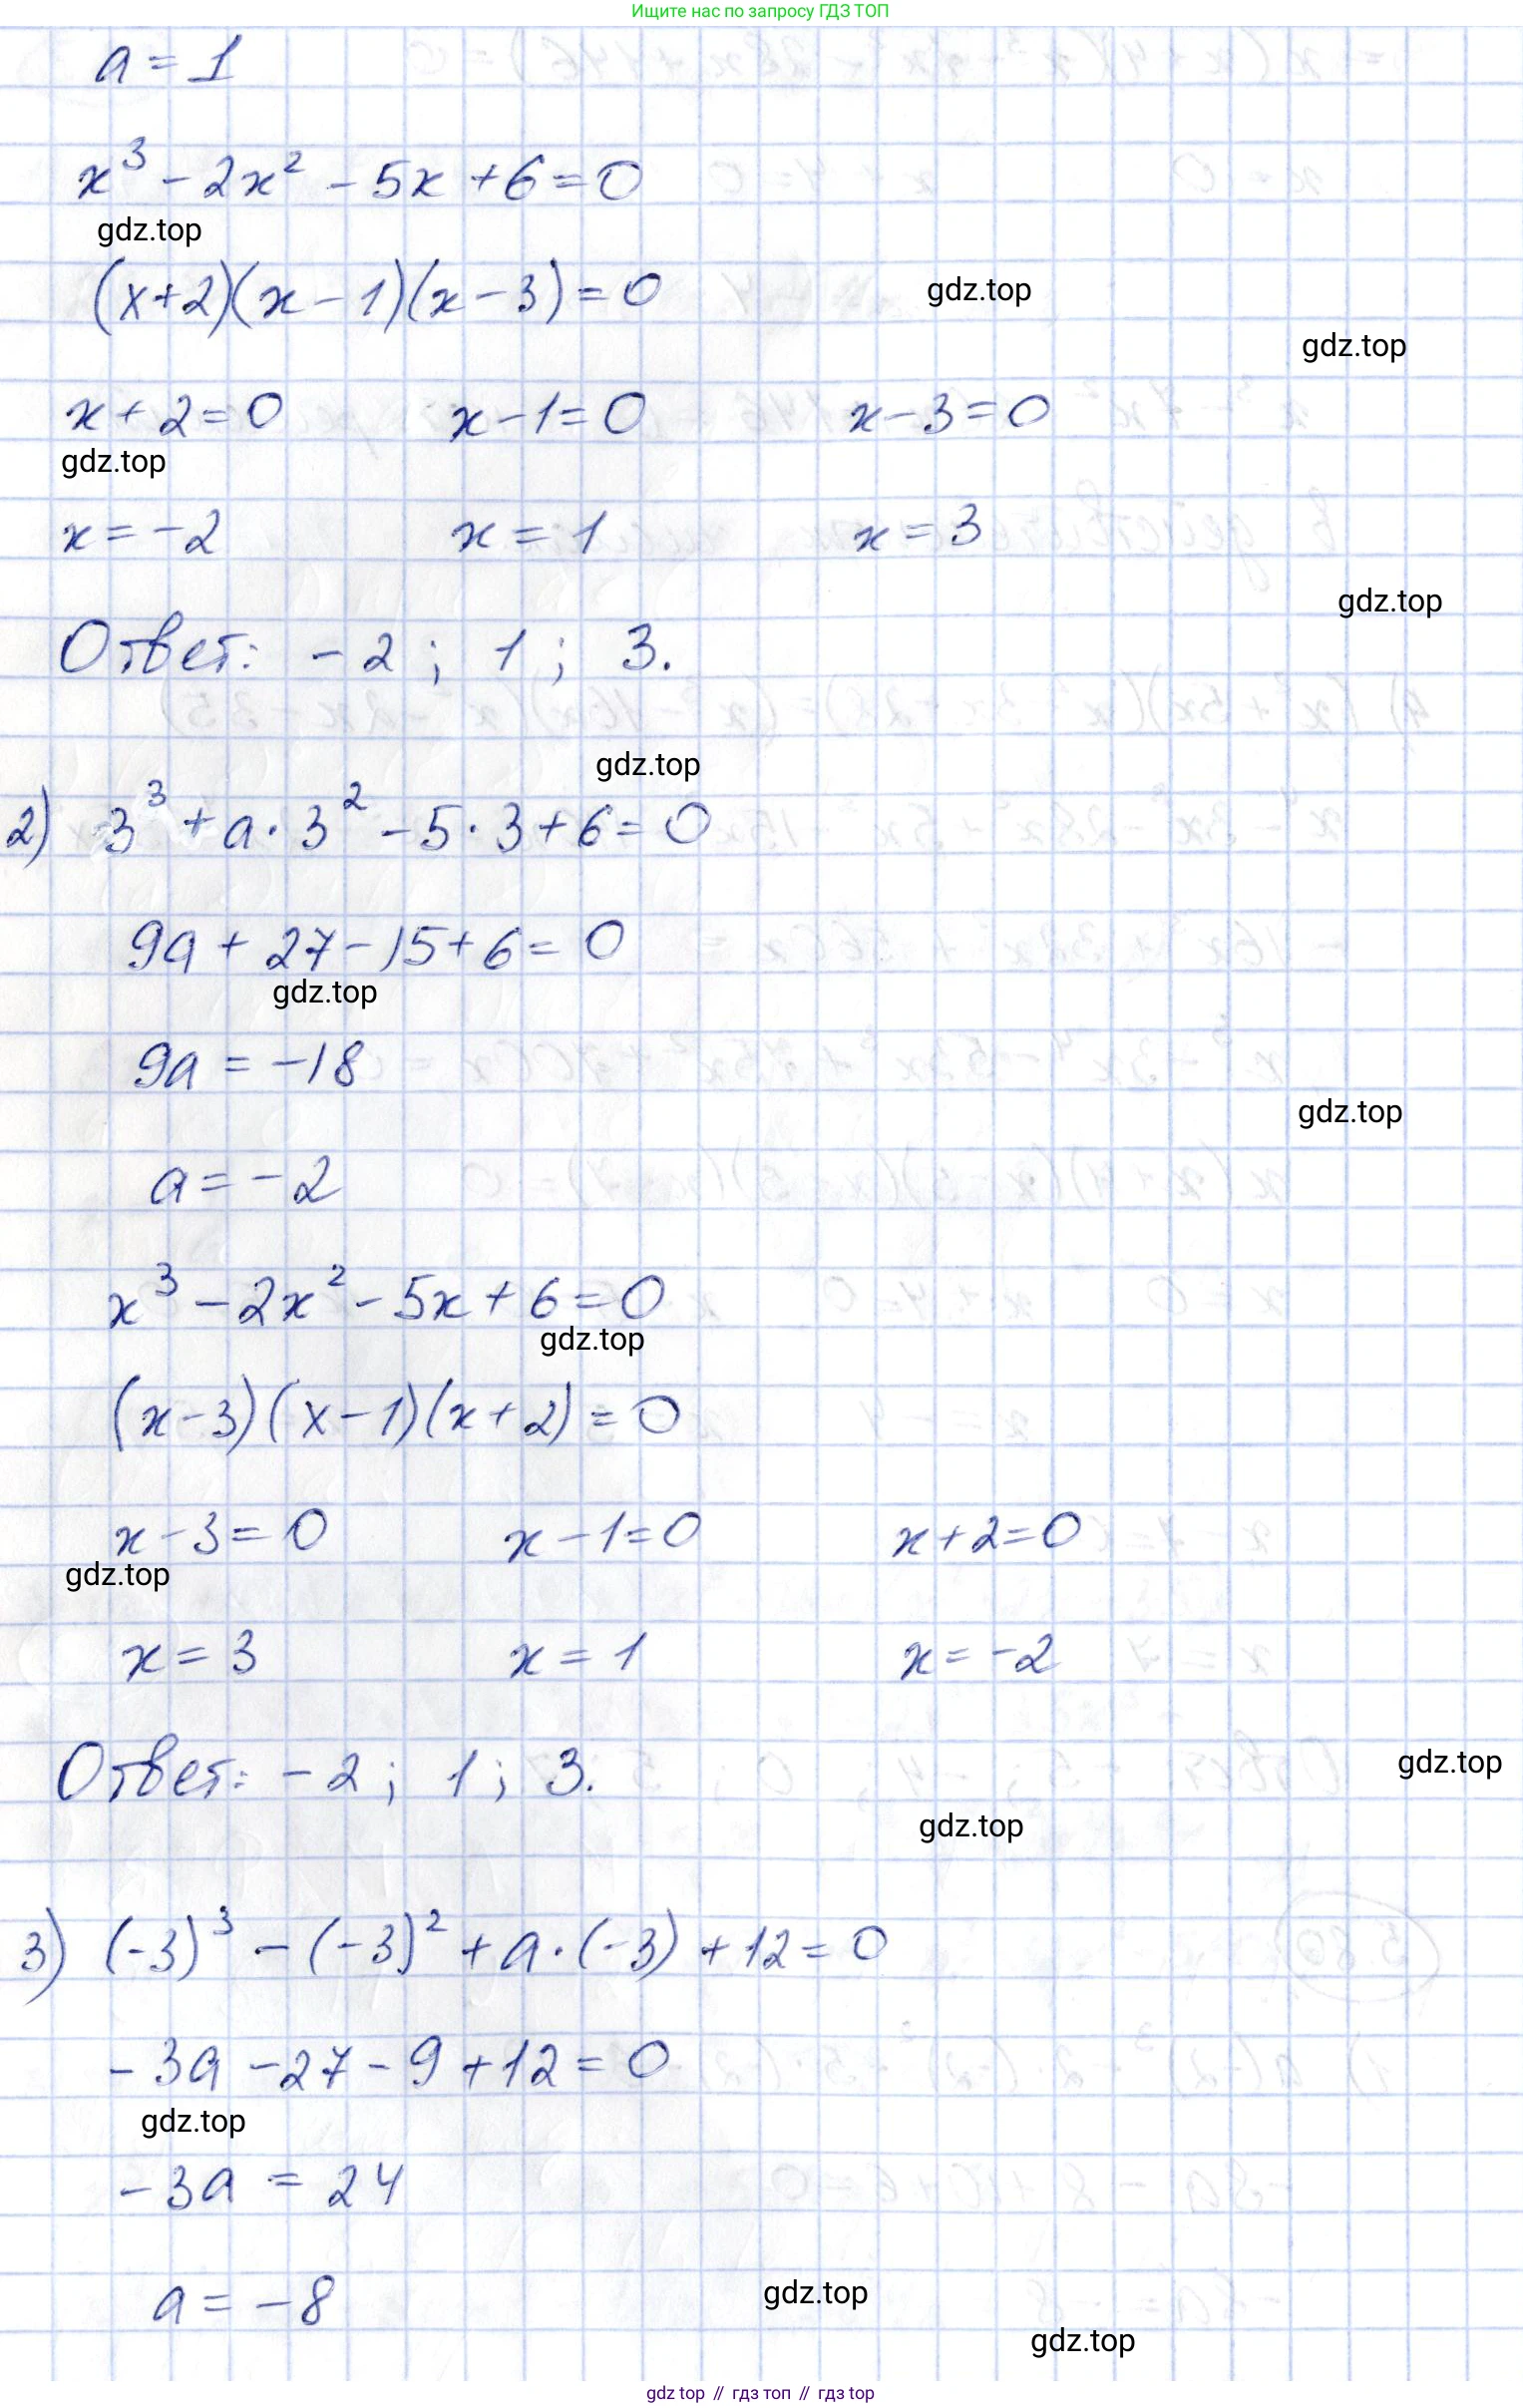 Ищите нас по запросу ГДЗ ТОП
a = 1
x³ - 2x² - 5x + 6 = 0
gdz.top
(x+2)(x-1)(x-3) = 0
gdz.top
gdz.top
x + 2 = 0 x - 1 = 0 x - 3 = 0
gdz.top
x = -2 x = 1 x = 3
gdz.top
Ответ: -2; 1; 3.
gdz.top
2) 3³ + a · 3² - 5 · 3 + 6 = 0
9a + 27 - 15 + 6 = 0
gdz.top
9a = -18
gdz.top
a = -2
x³ - 2x² - 5x + 6 = 0
gdz.top
(x-3)(x-1)(x+2) = 0
x - 3 = 0 x - 1 = 0 x + 2 = 0
gdz.top
x = 3 x = 1 x = -2
Ответ: -2; 1; 3.
gdz.top
gdz.top
3) (-3)³ - (-3)² + a · (-3) + 12 = 0
-3a - 27 - 9 + 12 = 0
gdz.top
-3a = 24
a = -8
gdz.top
gdz.top
gdz top // гдз топ // гдз top